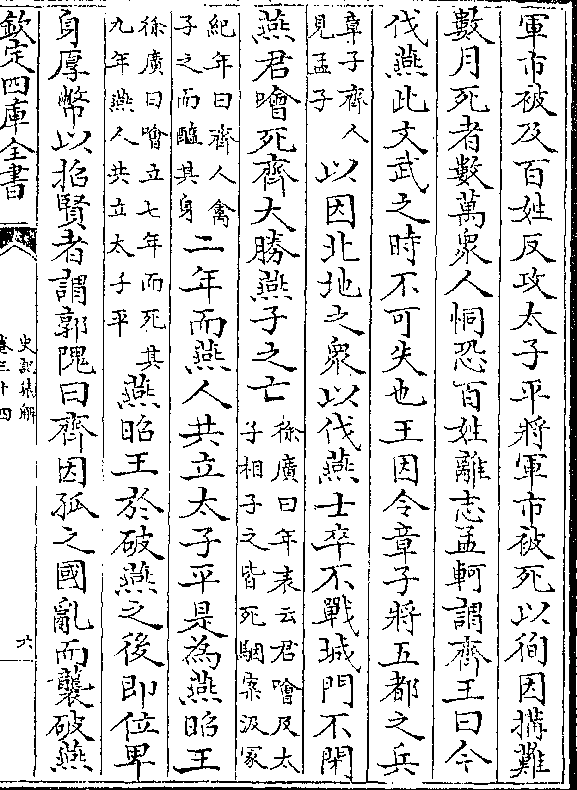 軍市被及百姓反攻太子平將軍市被死以徇因搆難
數月死者數萬衆人恫恐百姓離志孟軻謂齊王曰今
伐燕此文武之時不可失也王因令章子將五都之兵
章子齊人
見孟子
以因北地之衆以伐燕士卒不戰城門不閉
燕君噲死齊大勝燕子之亡
徐廣曰年表云君噲及太
子相子之皆死駰案汲冢
紀年曰齊人禽
子之而醢其身
二年而燕人共立太子平是為燕昭王
徐廣曰噲立七年而死其
九年燕人共立太子平
燕昭王於破燕之後即位卑
身厚幣以招賢者謂郭隗曰齊因孤之國亂而襲破燕
欽定四庫全書
史記集解
卷三十四
六